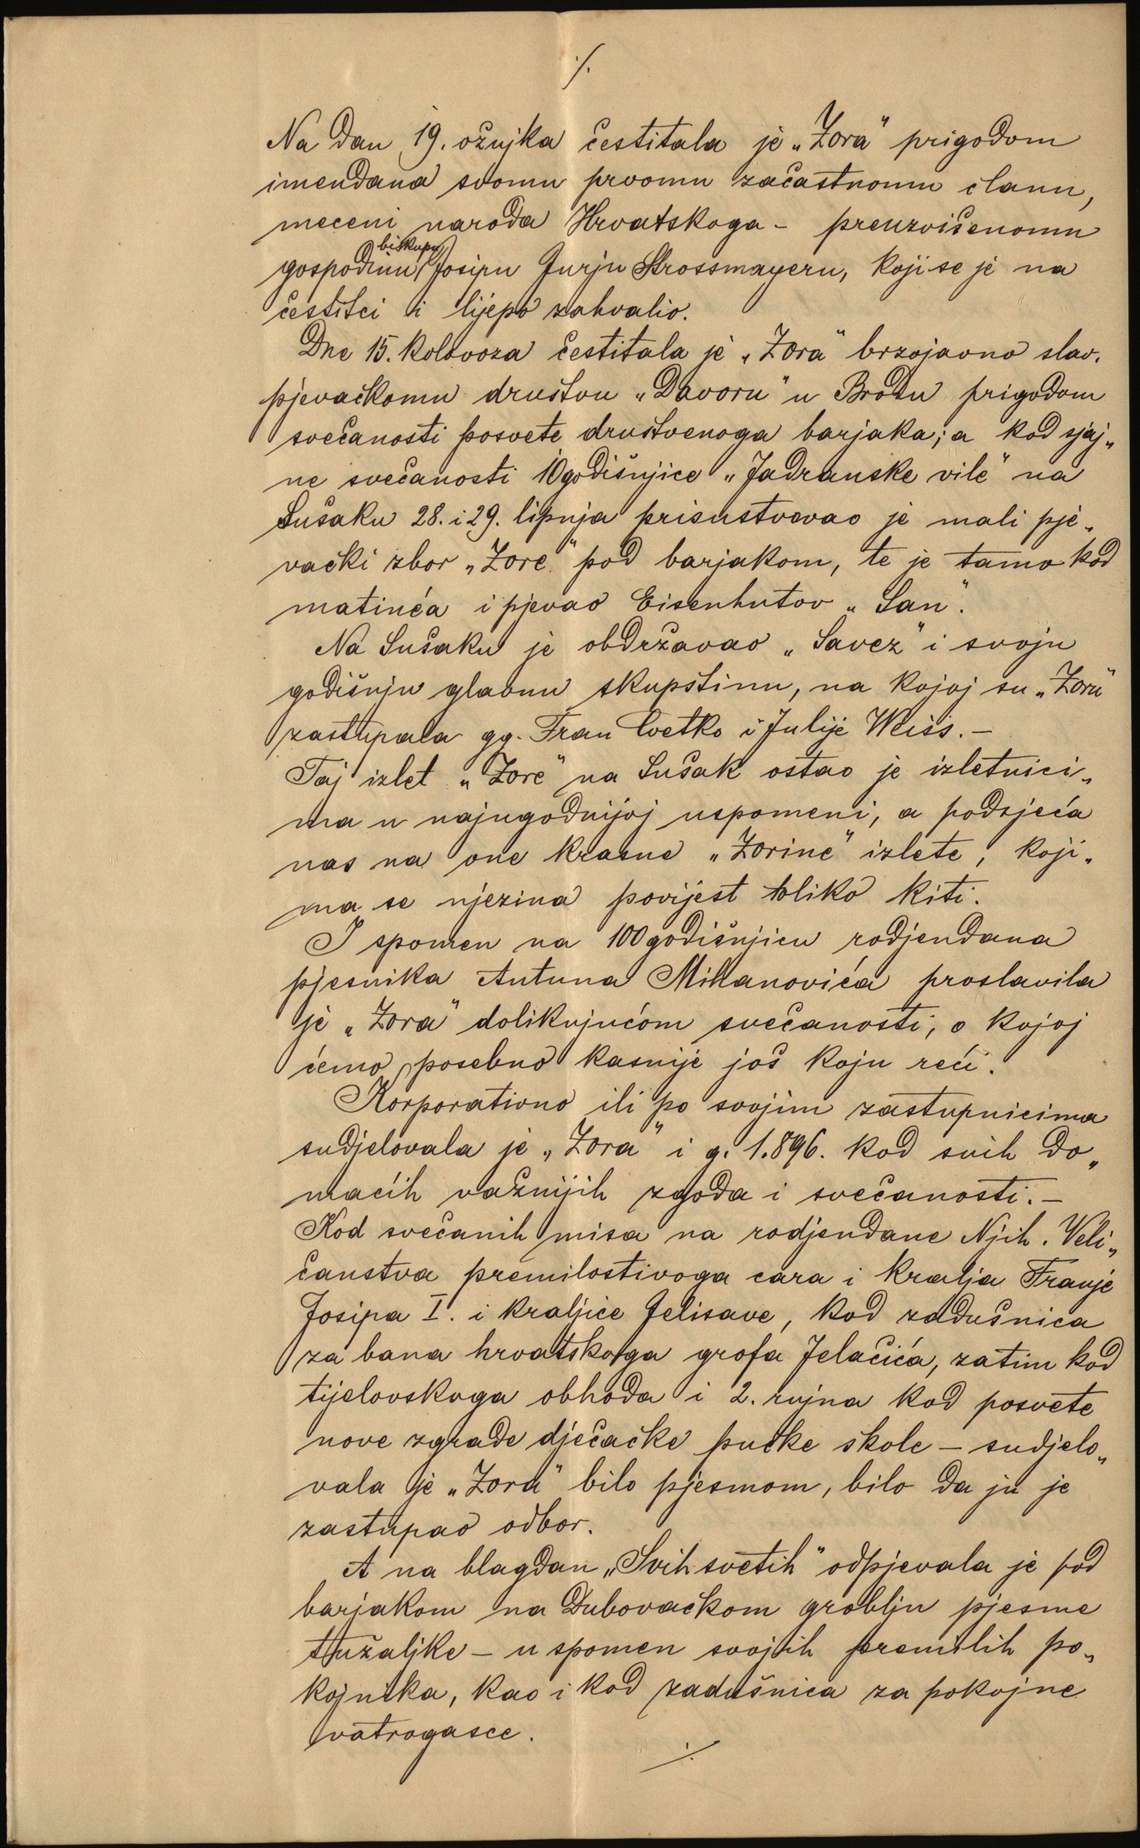 ·/.
Na dan 19. ožujka čestitala je „Zora" prigodom
imendana svomu prvomu začastnomu članu,
meceni naroda Hrvatskoga - preuzvišenomu
biskupu
gospodinu Josipu Jurju Strossmayeru, koji se je na
čestitci i lijepo zahvalio.
Dne 15. kolovoza čestitala je „Zora" brzojavno slav.
pjevačkomu društvu „Davoru" u Brodu prigodom
svečanosti posvete društvenoga barjaka; a kod sjaj„
ne svečanosti 10godišnjice „Jadranske vile" na
Sušaku 28. i 29. lipnja prisustvovao je mali pje„
vački zbor „Zore" pod barjakom, te je tamo kod
matinéa i pjevao Eisenhutov „San".
Na Sušaku je obdržavao „Savez" i svoju
godišnju glavnu skupštinu, na kojoj su „Zoru"
zastupala gg. Fran Cvetko i Julije Weiss. —
Taj izlet „Zore" na Sušak ostao je izletnici„
ma u najugodnijoj uspomeni, a podsjeća
nas na one krasne „Zorine" izlete, koji„
ma se njezina povijest toliko kiti.
I spomen na 100godišnjicu rodjendana
pjesnika Antuna Mihanovića proslavila
je „Zora" dolikujućom svečanosti, o kojoj
ćemo posebno kasnije još koju reći.
Korporativno ili po svojim zastupnicima
sudjelovala je „Zora" i g. 1.896. kod svih do„
maćih važnijih zgoda i svečanosti. —
Kod svečanih misa na rodjendane Njih. Veli„
čanstva premilostivoga cara i kralja Franje
Josipa I. i kraljice Jelisave, kod zadušnica
za bana hrvatskoga grofa Jelačića, zatim kod
tijelovskoga obhoda i 2. rujna kod posvete
nove zgrade dječačke pučke škole — sudjelo„
vala je „Zora" bilo pjesmom, bilo da ju je
zastupao odbor.
A na blagdan „Svih svetih" odpjevala je pod
barjakom na Dubovačkom groblju pjesme
tužaljke — u spomen svojih premilih po„
kojnika, kao i kod zadušnica za pokojne
vatrogasce.
·/.